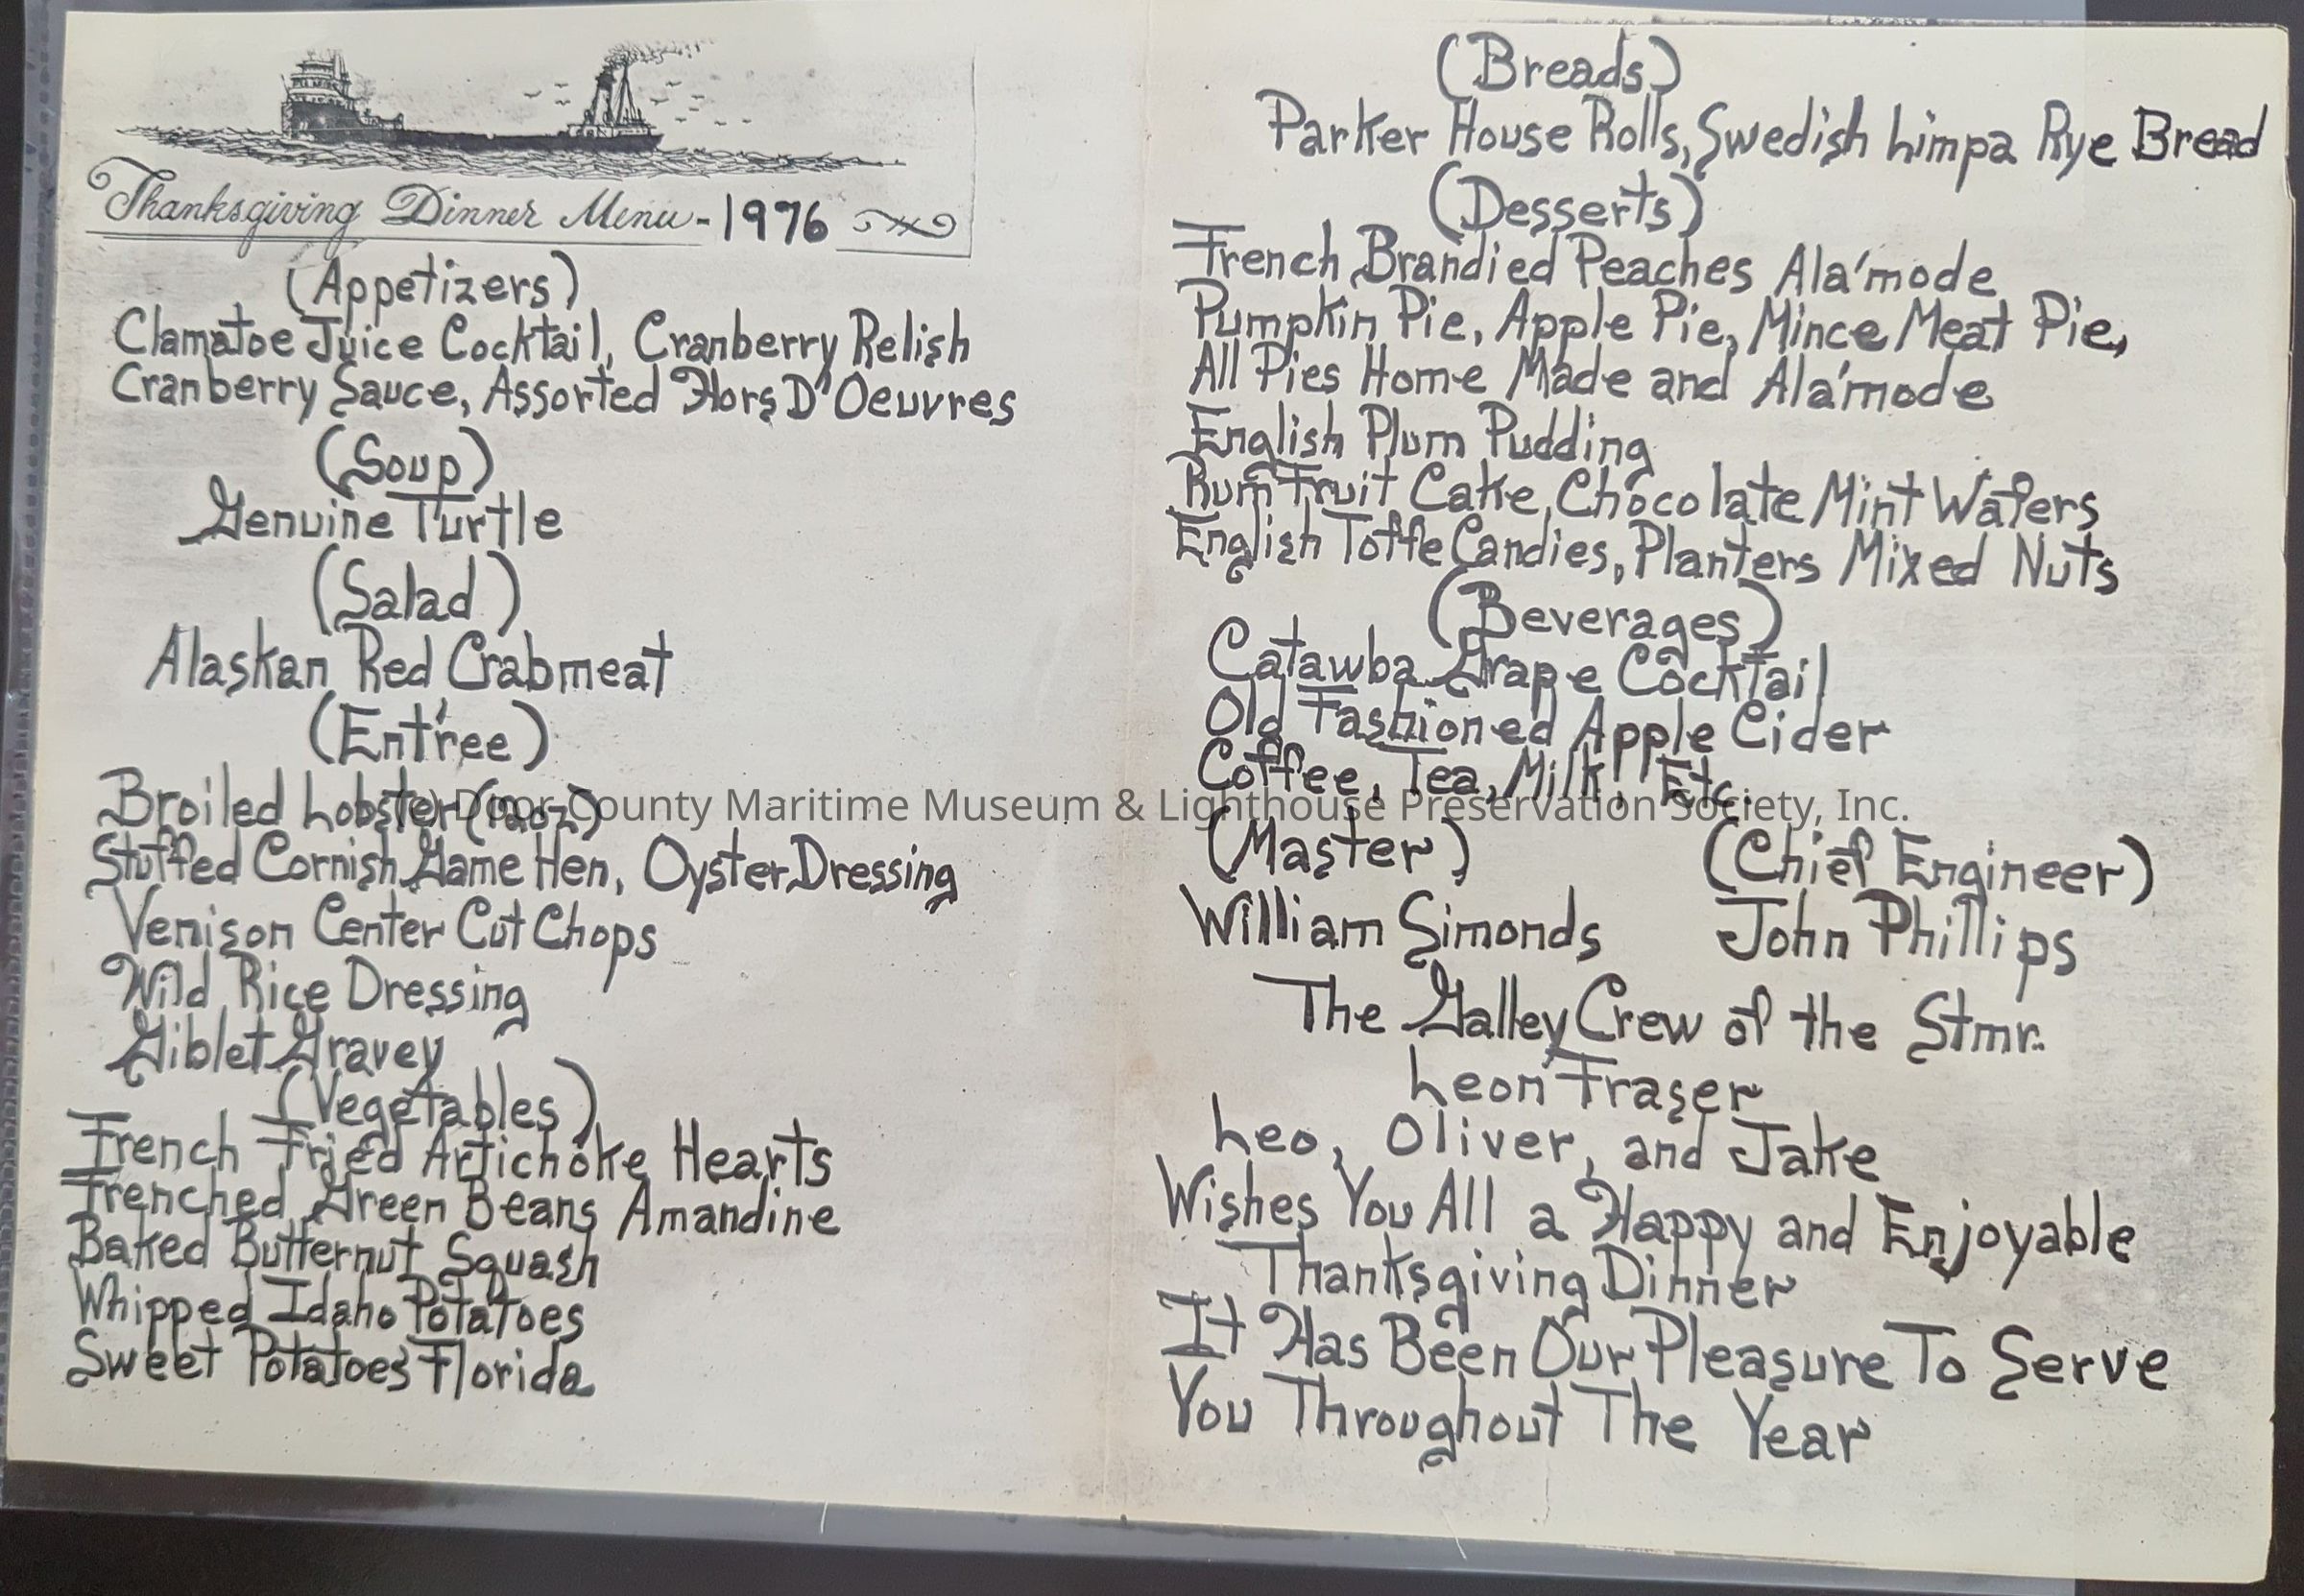 Thanksgiving Dinner Menu - 1976
(Appetizers)
Clamatoe Juice Cocktail, Cranberry Relish
Cranberry Sauce, Assorted Hors D'Oeuvres
(Soup)
Genuine Turtle
(Salad)
Alaskan Red Crabmeat
(Ent'ree)
Broiled Lobster
Stuffed Cornish Game Hen, Oyster Dressing
Venison Center Cut Chops
Wild Rice Dressing
Giblet Gravey
(Vegetables)
French Fried Artichoke Hearts
Frenched Green Beans Amandine
Baked Butternut Squash
Whipped Idaho Potatoes
Sweet Potatoes Florida
(Breads)
Parker House Rolls, Swedish Limpa Rye Bread
(Desserts)
French Brandied Peaches Ala'mode
Pumpkin Pie, Apple Pie, Mince Meat Pie,
All Pies Home Made and Ala'mode
English Plum Pudding
Rum Fruit Cake, Chocolate Mint Wafers
English Toffe Candies, Planters Mixed Nuts
(Beverages)
Catawba Grape Cocktail
Old Fashioned Apple Cider
Coffee, Tea, Milk, Etc.
(Master) (Chief Engineer)
William Simonds John Phillips
The Galley Crew of the Stmr.
Leon Fraser
Leo, Oliver, and Jake
Wishes You All a Happy and Enjoyable
Thanksgiving Dinner
It Has Been Our Pleasure To Serve
You Throughout The Year
(c) Door County Maritime Museum & Lighthouse Preservation Society, Inc.